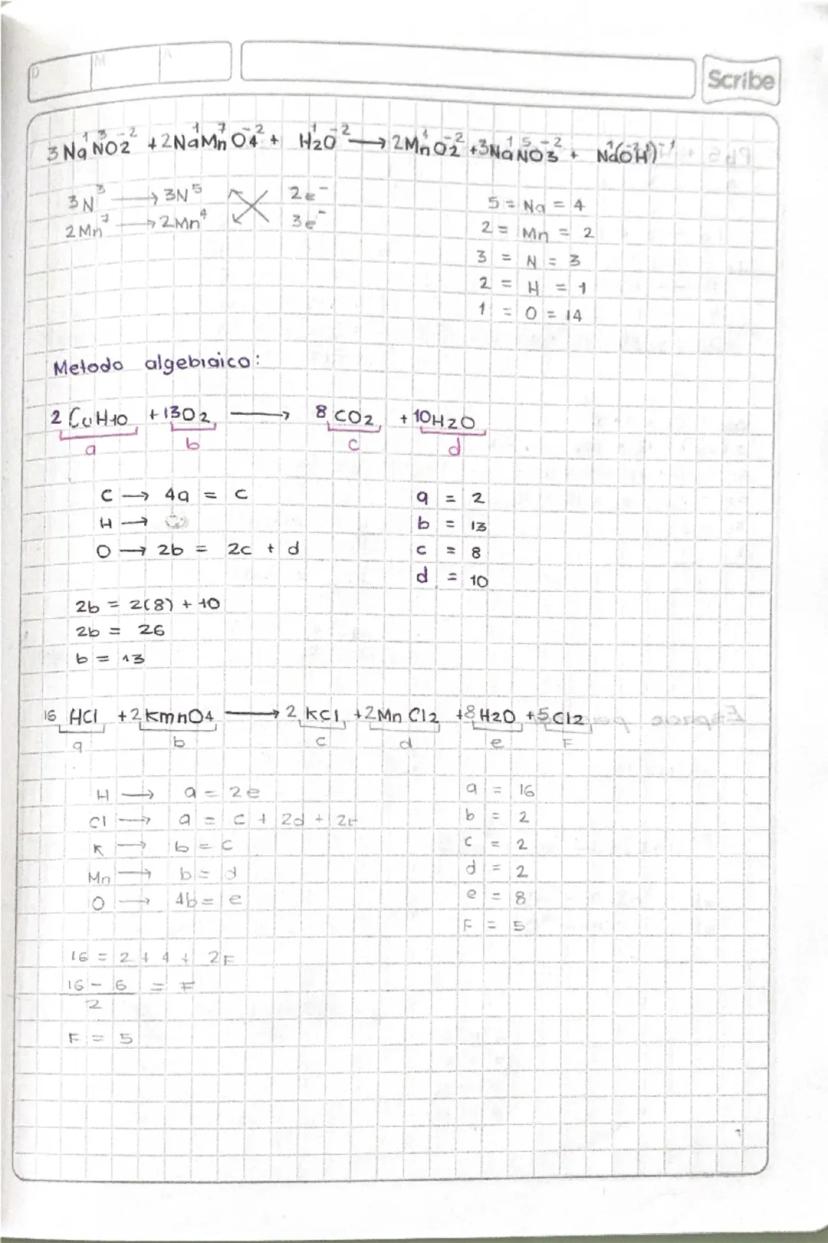 D M A
Scribe
3Na¹N³O₂⁻² + 2Na¹Mn⁷O₄⁻² + H₂¹O⁻² → 2Mn⁴O₂⁻² + 3Na¹N⁵O₃⁻² + Na¹(O⁻²H¹)⁻¹
3N³ → 3N⁵ 2e⁻
2Mn⁷ → 2Mn⁴ 3e⁻
5 = Na = 4
2 = Mn = 2
3 = N = 3
2 = H = 1
1 = O = 14
Metodo algebraico:
2 C4H10 + 13O2 → 8 CO2 + 10H2O
a b c d
C → 4a = c
H →
O → 2b = 2c + d
a = 2
b = 13
c = 8
d = 10
2b = 2(8) + 10
2b = 26
b = 13
16 HCl + 2 KmnO4 → 2 KCl + 2MnCl2 + 8H2O + 5Cl2
a b c d e F
H → a = 2e
Cl → a = c + 2d + 2F
K → b = c
Mn → b = d
O → 4b = e
a = 16
b = 2
c = 2
d = 2
e = 8
F = 5
16 = 2 + 4 + 2F
16 - 6 = F
2
F = 5